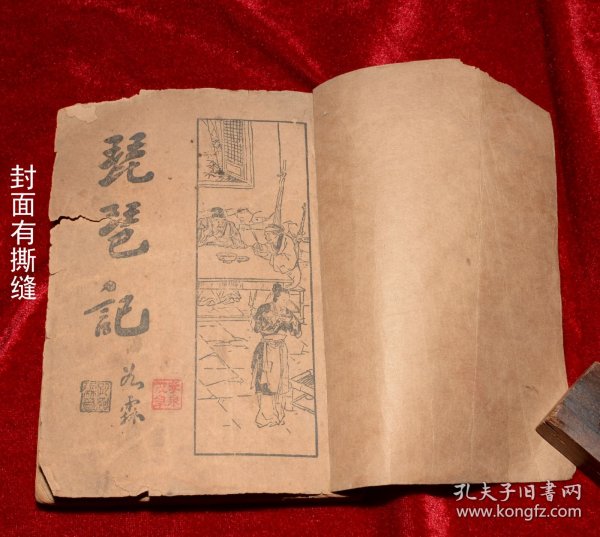 封面有撕缝
琵琶记
孔夫子旧书网
www.kongfz.com